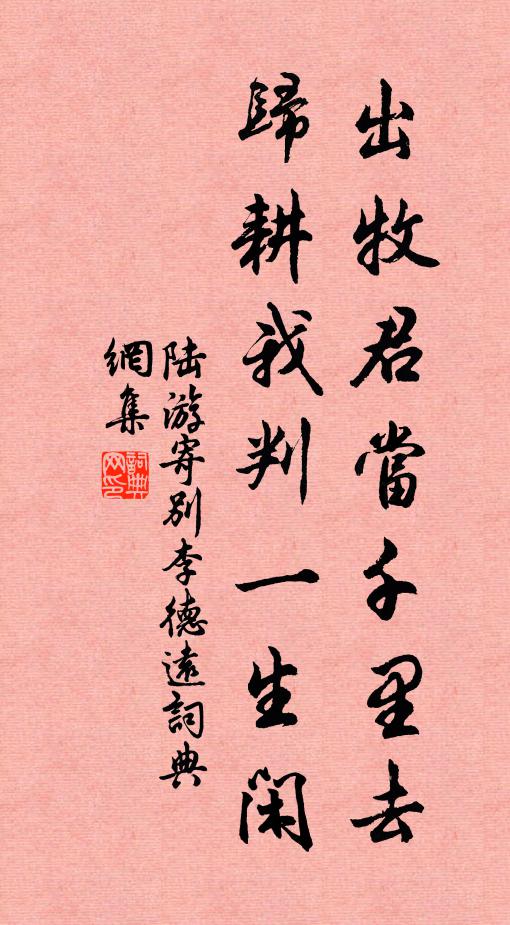 出牧君當千里去
歸耕我判一生閑
陆游寄别李德遠詞典
網集
詞典網印